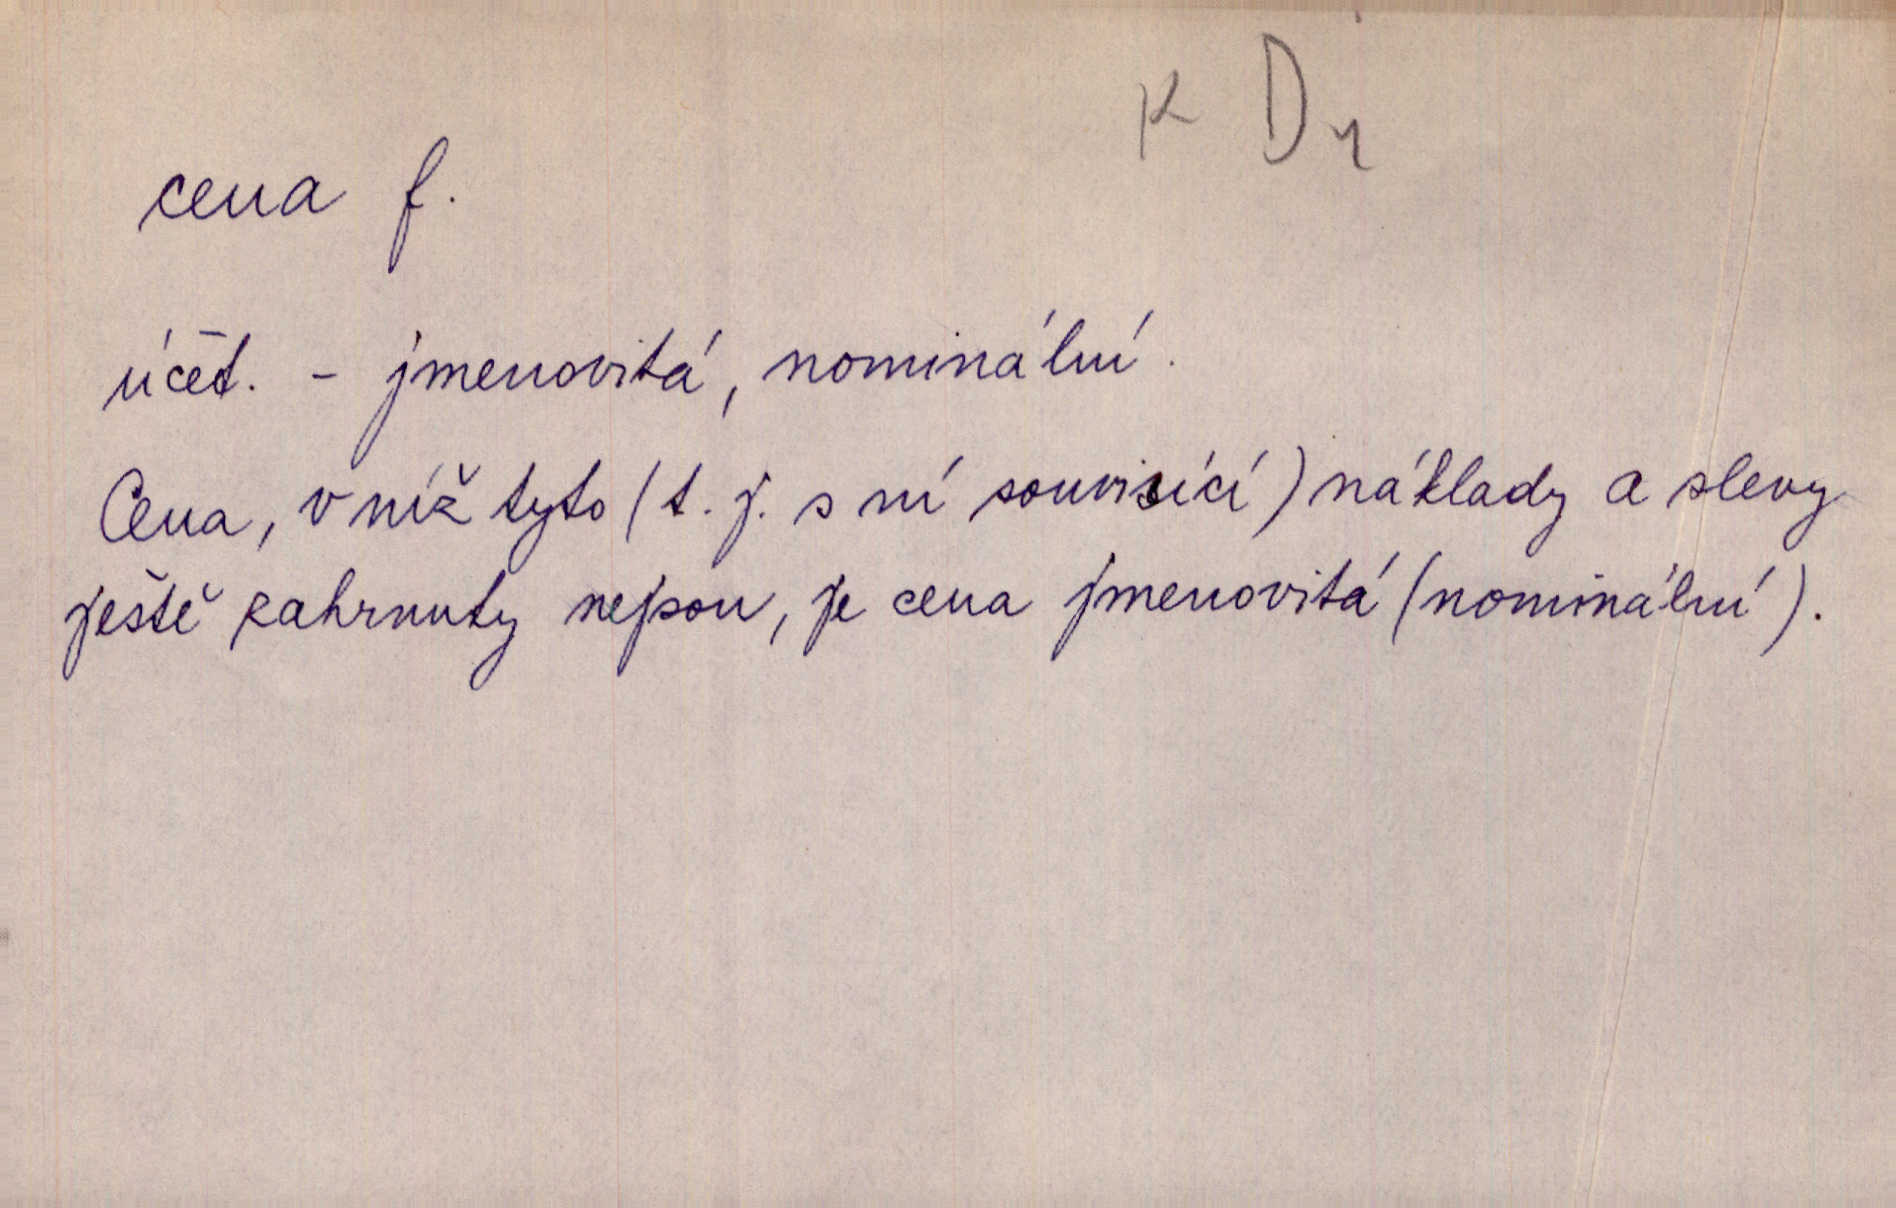 K Dy
cena f.
účet. - jmenovitá, nominální.
Cena, v níž tyto (t. j. s ní souvisící) náklady a slevy
ještě zahrnuty nejsou, je cena jmenovitá (nominální).